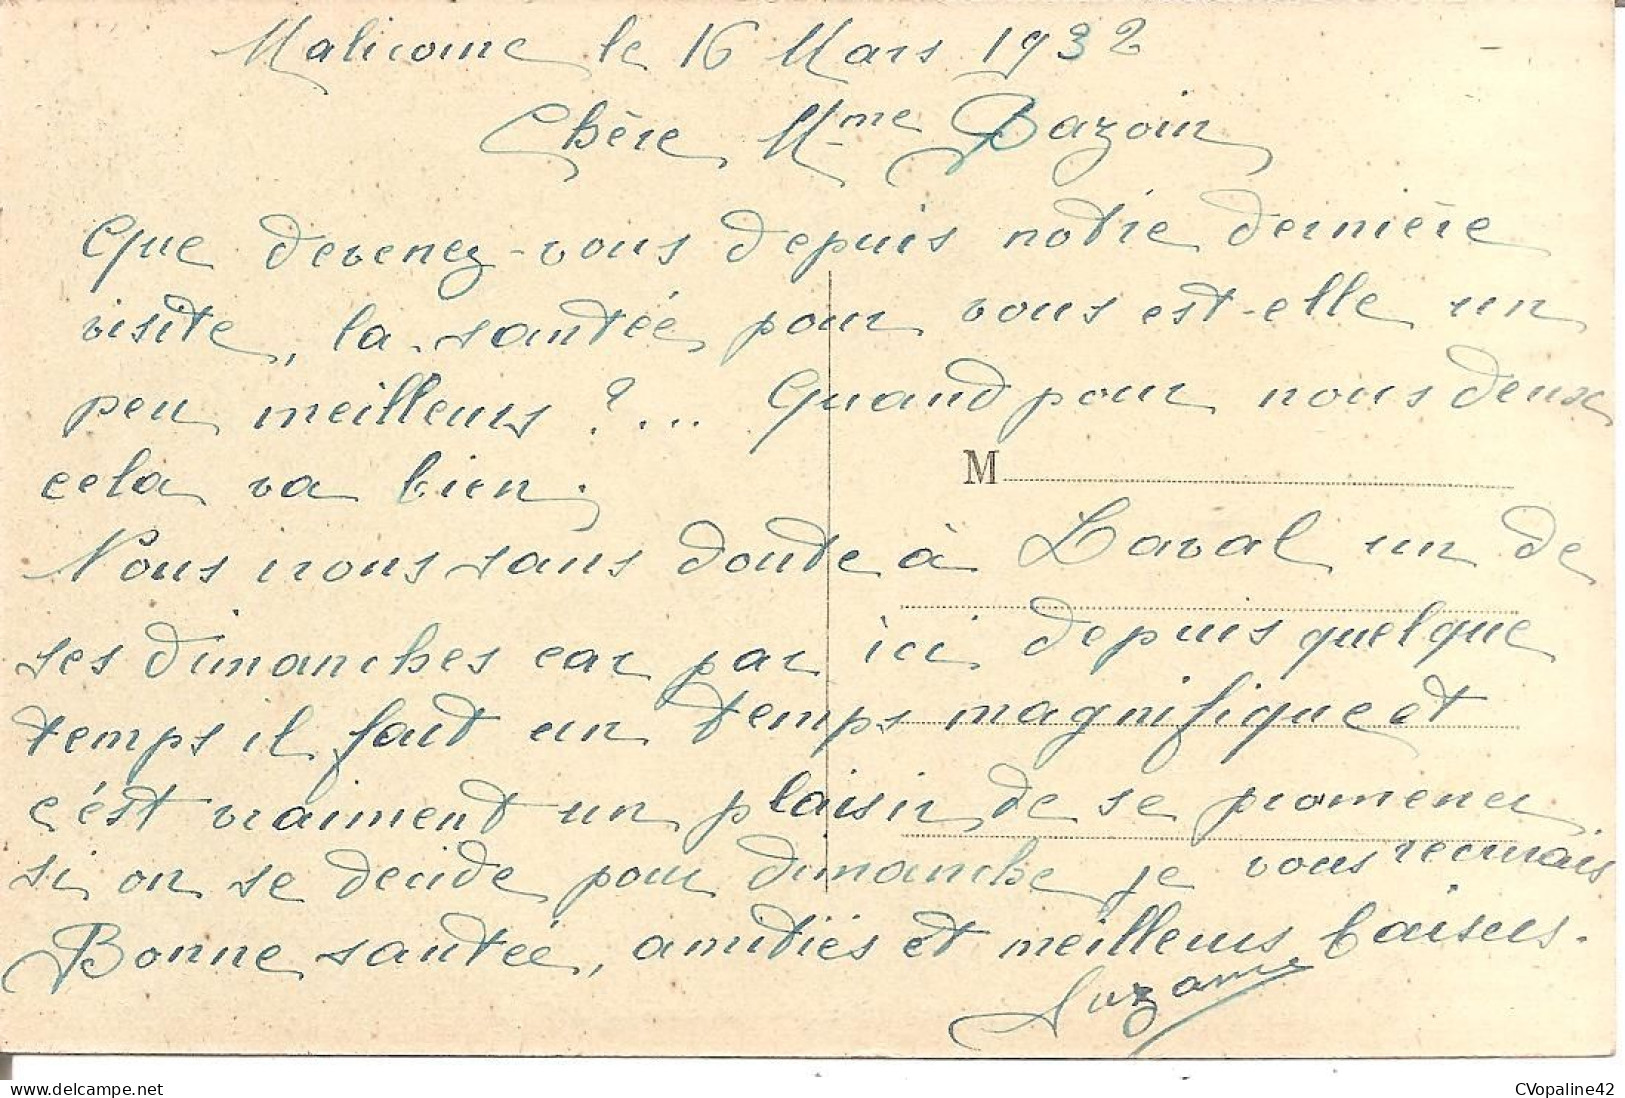 Malicorne le 16 Mars 1932
Chère Mme Bazoin
Que devenez-vous depuis notre dernière
visite, la santée pour vous est-elle un
peu meilleurs ?... Quand pour nous deux
cela va bien.
M
Nous irons sans doute à Laval un de
ses dimanches car par ici depuis quelque
temps il fait un temps magnifique et
c'est vraiment un plaisir de se promener
si on se decide pour dimanche je vous
Bonne santée, amitiés et meilleurs baisers.
Suzanne
delcampe.net
CVopaline42